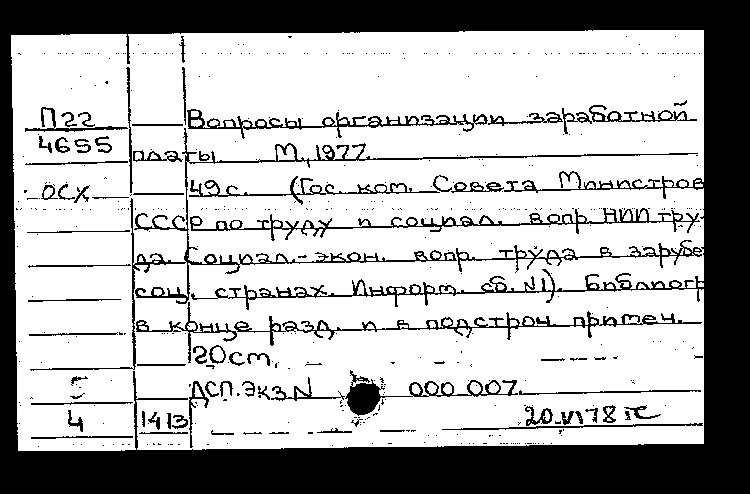 П22 Вопросы организации заработной
4655 платы М., 1977.
ОСХ 49с. (Гос. ком. Совета Министров
СССР по труду и социал. вопр. НИИ тру-
да. Социал.-экон. вопр. труда в зарубе
соц. странах. Информ. сб. N1). Библиогр
в конце разд. и в подстроч. примеч.
20см.
5 ДСП. Экз N 000 007.
4 1413 20.VI 78